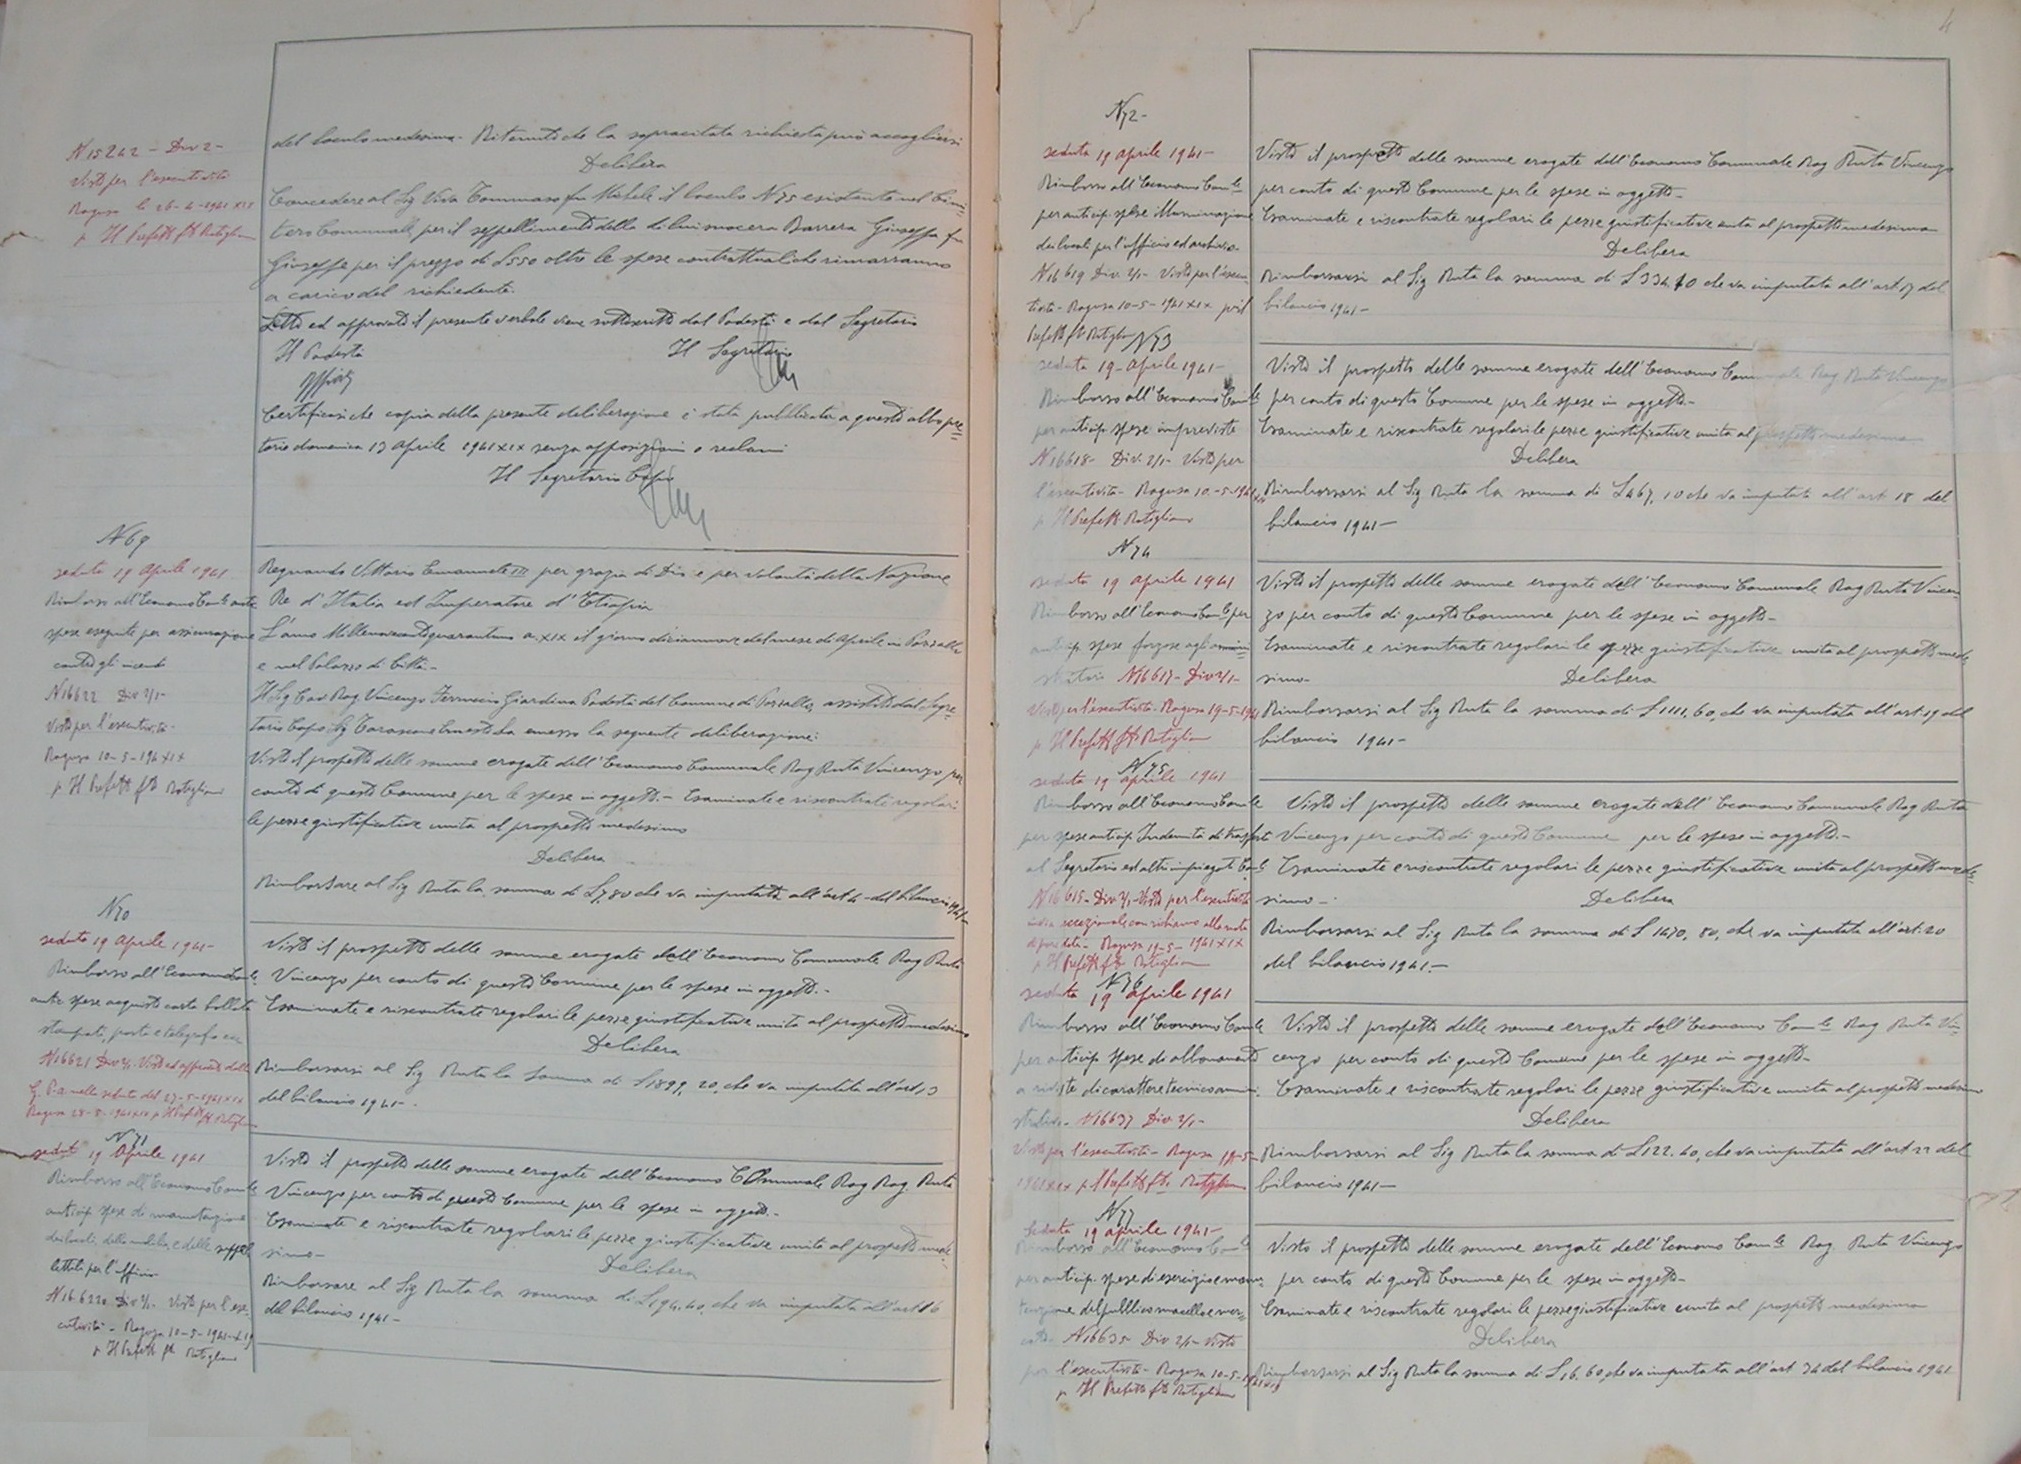 N 15242 - Div 2 -
Visto per l'esecutività
Ragusa li 26-4-1941 XIX
p Il Prefetto fto Ratigliano
del loculo medesimo - Ritenuto che la sopracitata richiesta può accogliersi
Delibera
Concedere al Sig Viva Tommaso fu Michele il loculo N 75 esistente nel Cimi-
tero Comunale per il seppellimento della di lui suocera Barrera Giuseppa fu
Giuseppe per il prezzo di L 550 oltre le spese contrattuali che rimarranno
a carico del richiedente.
Letto ed approvato il presente verbale viene sottoscritto dal Podestà e dal Segretario
Il Podestà Il Segretario
Certificasi che copia della presente deliberazione è stata pubblicata a questo albo pre-
torio domenica 13 Aprile 1941 XIX senza opposizioni o reclami
Il Segretario Capo
N 69
seduta 19 Aprile 1941
Rimborso all'Economo Com.le antic
spese eseguite per assicurazione
contro gli incendi
N 16622 Div 2/1 -
Visto per l'esecutività -
Ragusa 10-5-194 XIX
p Il Prefetto fto Ratigliano
Regnando Vittorio Emanuele III per grazia di Dio e per volontà della Nazione
Re d'Italia ed Imperatore d'Etiopia
L'anno Millenovecentoquarantuno a. XIX il giorno diciannove del mese di Aprile in Pozzallo
e nel Palazzo di Città -
Il Sig Cav Rag. Vincenzo Ferruccio Giardina Podestà del Comune di Pozzallo, assistito dal Segre-
tario Capo Sig Tarascone Ernesto ha emesso la seguente deliberazione:
Visto il prospetto delle somme erogate dall'Economo Comunale Rag Ruta Vincenzo per
conto di questo Comune per le spese in oggetto - Esaminate e riscontrate regolari
le pezze giustificative unita al prospetto medesimo
Delibera
Rimborsare al Sig Ruta la somma di L 7,80 che va imputata all'art 4 - del bilancio 1941 -
N 70
seduta 19 Aprile 1941 -
Rimborso all'Economo Com.le
antic spese acquisto carta bollata
stampati, posta e telegrafo ecc
N 16621 Div 2/1 Visto ed approvato dalla
G. P. A. nella seduta del 27-5-1941 XIX
Ragusa 28-5-1941 XIX p Il Prefetto fto Ratigliano
Visto il prospetto delle somme erogate dall'Economo Comunale Rag Ruta
Vincenzo per conto di questo Comune per le spese in oggetto. -
Esaminate e riscontrate regolari le pezze giustificative unita al prospetto medesimo
Delibera
Rimborsarsi al Sig Ruta la somma di L 1899, 20, che va imputata all'art 13
del bilancio 1941 - .
N 71
seduta 19 Aprile 1941
Rimborso all'Economo Com.le
anticip spese di manutenzione
dei locali, della mobilia e delle suppel-
lettili per l'Ufficio
N 16.6220 Div 2/1 - Visto per l'ese-
cutività - Ragusa 10-5-1941-XIX
p Il Prefetto fto Ratigliano
Visto il prospetto delle somme erogate dell'Economo Comunale Rag Rag. Ruta
Vincenzo per conto di questo Comune per le spese in oggetto. -
Esaminate e riscontrate regolari le pezze giustificative unita al prospetto mede-
simo -
Delibera
Rimborsare al Sig Ruta la somma di L 194.40, che va imputata all'art 16
del bilancio 1941 -
4
N 72 -
seduta 19 Aprile 1941 -
Rimborso all'Economo Com.le
per anticip. spese illuminazione
dei locali per l'ufficio ed archivio
N 16619 Div. 2/1 - Visto per l'esecu-
tività - Ragusa 10-5-1941 XIX p il
Prefetto fto Ratigliano
Visto il prospetto delle somme erogate dell'Economo Comunale Rag Ruta Vincenzo
per conto di questo Comune per le spese in oggetto -
Esaminate e riscontrate regolari le pezze giustificative unita al prospetto medesimo
Delibera
Rimborsarsi al Sig Ruta la somma di L 334,10 che va imputata all'art 17 del
bilancio 1941 -
N 73
seduta 19 - Aprile 1941 -
Rimborso all'Economo Com.le
per anticip. spese impreviste
N 16618 - Div. 2/1 - Visto per
l'esecutività - Ragusa 10-5-1941 XIX
p Il Prefetto Ratigliano
Visto il prospetto delle somme erogate dell'Economo Comunale Rag Ruta Vincenzo
per conto di questo Comune per le spese in oggetto -
Esaminate e riscontrate regolari le pezze giustificative unita al prospetto medesimo
Delibera
Rimborsarsi al Sig Ruta la somma di L 467, 10 che va imputata all'art 18 del
bilancio 1941 -
N 74
seduta 19 Aprile 1941
Rimborso all'Economo Com.le per
anticip. spese forzose agli ammini-
stratori N 16617 - Div 2/1 -
Visto per l'esecutività - Ragusa 19-5-1941
p Il Prefetto fto Ratigliano
Visto il prospetto delle somme erogate dell'Economo Comunale Rag Ruta Vincen-
zo per conto di questo Comune per le spese in oggetto -
Esaminate e riscontrate regolari le pezze giustificative unita al prospetto mede-
simo - Delibera
Rimborsarsi al Sig Ruta la somma di L 1111, 60, che va imputata all'art. 19 del
bilancio 1941 -
N 75
seduta 19 aprile 1941
Rimborso all'Economo Com.le
per spese anticip. Indennità di trasferte
al Segretario ed altri impiegati Com.li
N 16615 - Div 2/1 - Visto per l'esecutività
in via eccezionale, con richiamo alla nota
- Ragusa 19-5-1941 XIX
p Il Prefetto fto Ratigliano
Visto il prospetto delle somme erogate dall'Economo Comunale Rag Ruta
Vincenzo per conto di questo Comune per le spese in oggetto. -
Esaminate e riscontrate regolari le pezze giustificative unita al prospetto mede-
simo - Delibera
Rimborsarsi al Sig Ruta la somma di L 1470, 80, che va imputata all'art. 20
del bilancio 1941 -
N 76
seduta 19 Aprile 1941
Rimborso all'Economo Com.le
per anticip. spese di abbonamento
a riviste di carattere tecnico ammini-
strativo - N 16637 Div 2/1 -
Visto per l'esecutività - Ragusa
1941 XIX p Il Prefetto fto Ratigliano
Visto il prospetto delle somme erogate dall'Economo Com.le Rag Ruta Vin-
cenzo per conto di questo Comune per le spese in oggetto -
Esaminate e riscontrate regolari le pezze giustificative unita al prospetto medesimo
Delibera
Rimborsarsi al Sig Ruta la somma di L 122. 40, che va imputata all'art 22 del
bilancio 1941 -
N 77
seduta 19 aprile 1941 -
Rimborso all'Economo Com.le
per anticip. spese di esercizio e manu-
tenzione del pubblico macello e mer-
cato - N 16635 Div 2/1 - Visto
per l'esecutività - Ragusa 10-5-1941 XIX
p Il Prefetto fto Ratigliano
Visto il prospetto delle somme erogate dell'Economo Com.le Rag. Ruta Vincenzo
per conto di questo Comune per le spese in oggetto -
Esaminate e riscontrate regolari le pezze giustificative unita al prospetto medesimo
Delibera
Rimborsarsi al Sig Ruta la somma di L 16. 60, che va imputata all'art 34 del bilancio 1941